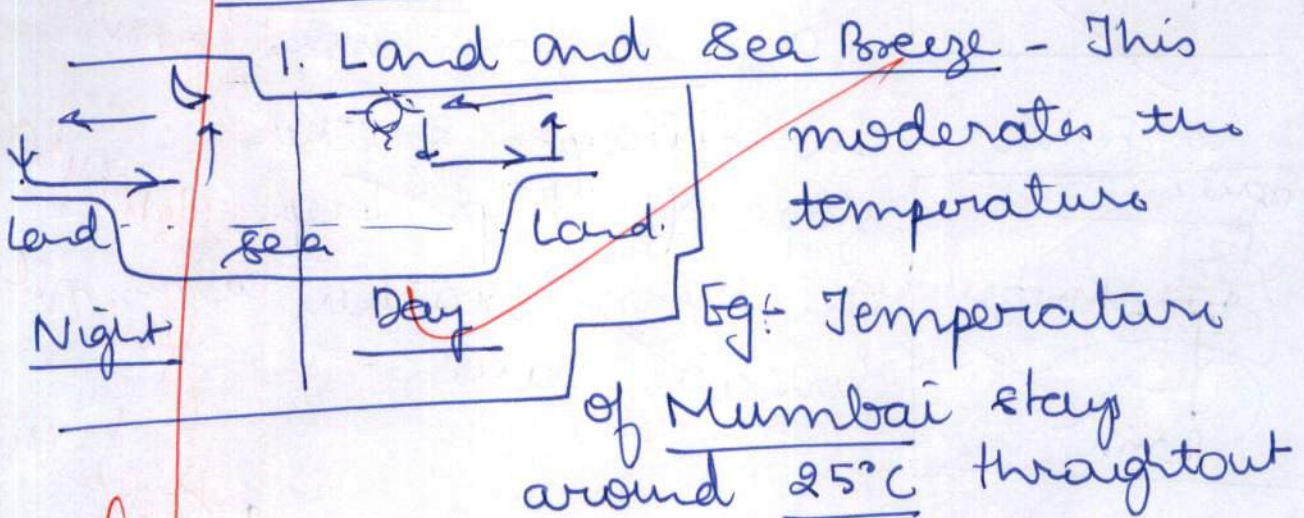 1. Land and Sea Breeze - This
moderates the
temperature
Land
sea
Land.
Night
Day
Eg:- Temperature
of Mumbai stay
around 25°C thraightout